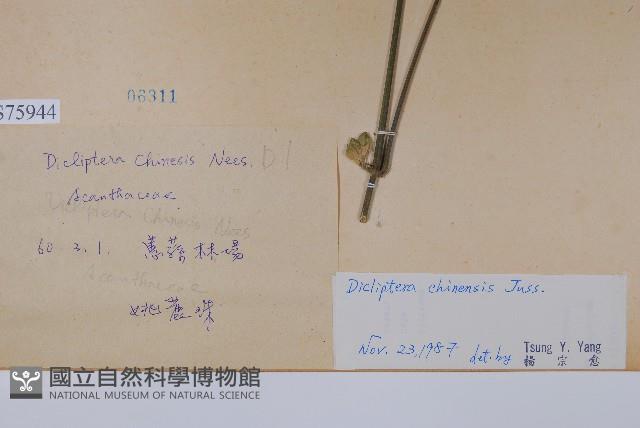 06311
S75944
Dicliptera Chinesis Nees. D1
Acanthaceae
Dicliptera Chinesis Nees
60 3. 1. 蕙蓀林場
Acanthaceae
姚麗珠
Dicliptera chinensis Juss.
Nov. 23, 1987 det. by Tsung Y. Yang
楊宗愈
國立自然科學博物館
NATIONAL MUSEUM OF NATURAL SCIENCE